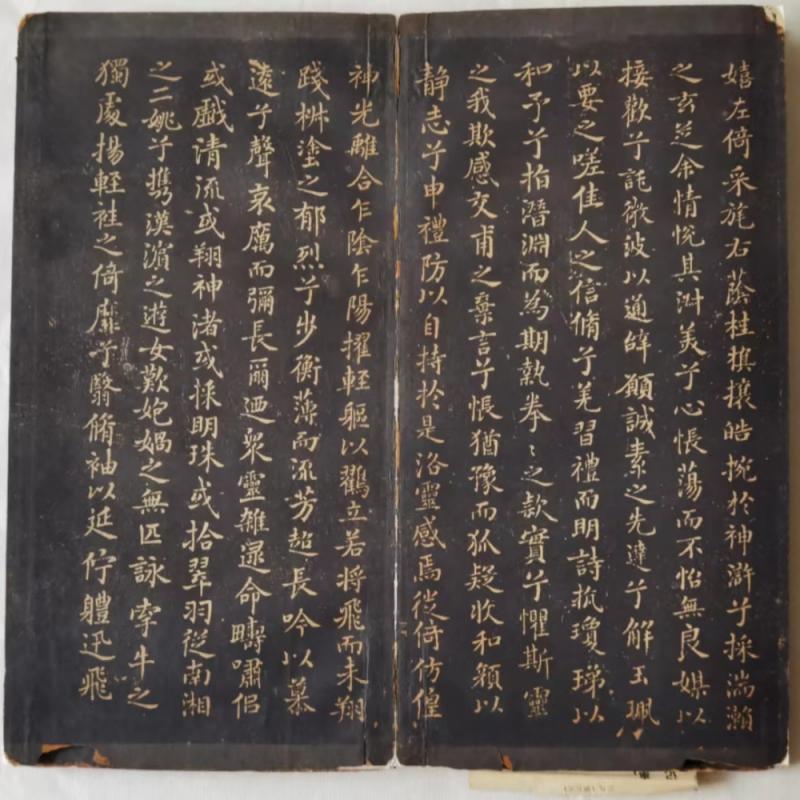 嬉左倚采旄右蔭桂旗攘皓捥於神滸兮採湍瀨
之玄芝余情悅其淑美兮心悵蕩而不怡無良媒以
接歡兮託微波以通辭願誠素之先達兮解玉珮
以要之嗟佳人之信脩兮羌習禮而明詩抗瓊珶以
和予兮指潛淵而為期執拳〻之欵實兮懼斯靈
之我欺感交甫之棄言兮悵猶豫而狐疑收和顏以
静志兮申禮防以自持於是洛靈感焉徙倚仿偟
神光離合乍陰乍陽擢輕軀以鸛立若將飛而未翔
踐椒塗之郁烈兮步衡薄而流芳超長吟以慕
遠兮聲哀厲而彌長爾迺衆靈雜遝命疇嘯侣
或戲清流或翔神渚或採明珠或拾翠羽從南湘
之二姚兮攜漢濱之遊女歎匏媧之無匹詠牽牛之
獨處揚輕袿之倚靡兮翳脩袖以延佇體迅飛